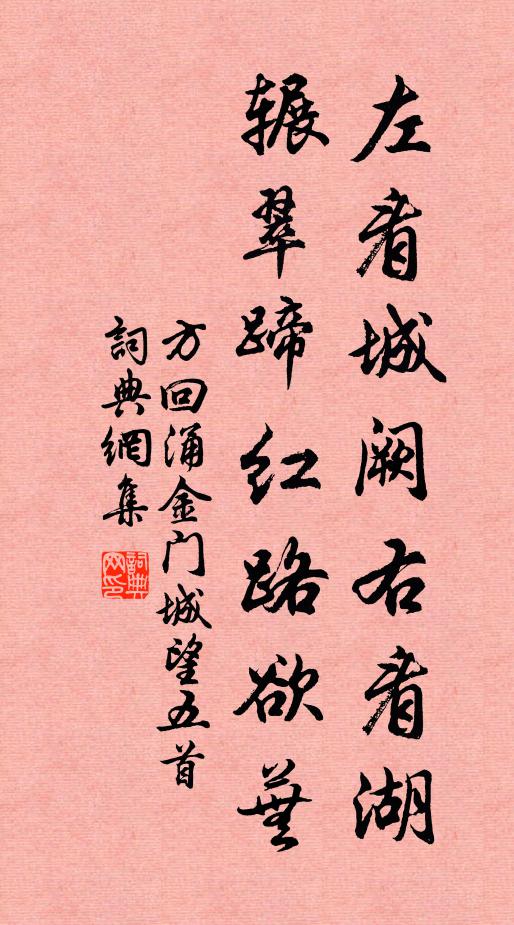 左看城阙右看湖
辗翠蹄红路欲蕪
方回涌金门城望五首
詞典網集
詞典网印